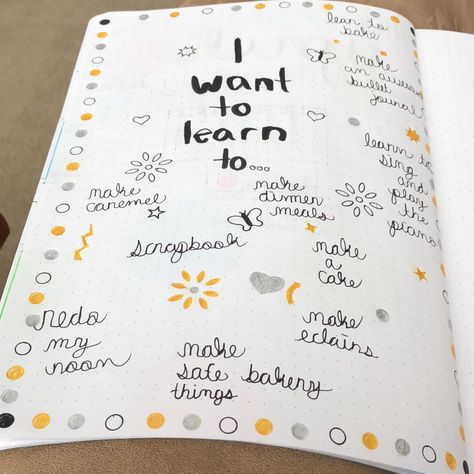 I
want
to
learn
to...
learn to
bake
make
an awesom
bullet
journal
learn to
sing
and
play
the
piano
make
caremel
make
dinner
meals
scrapbook
make
a
cake
redo
my
room
make
eclairs
make
safe bakery
things